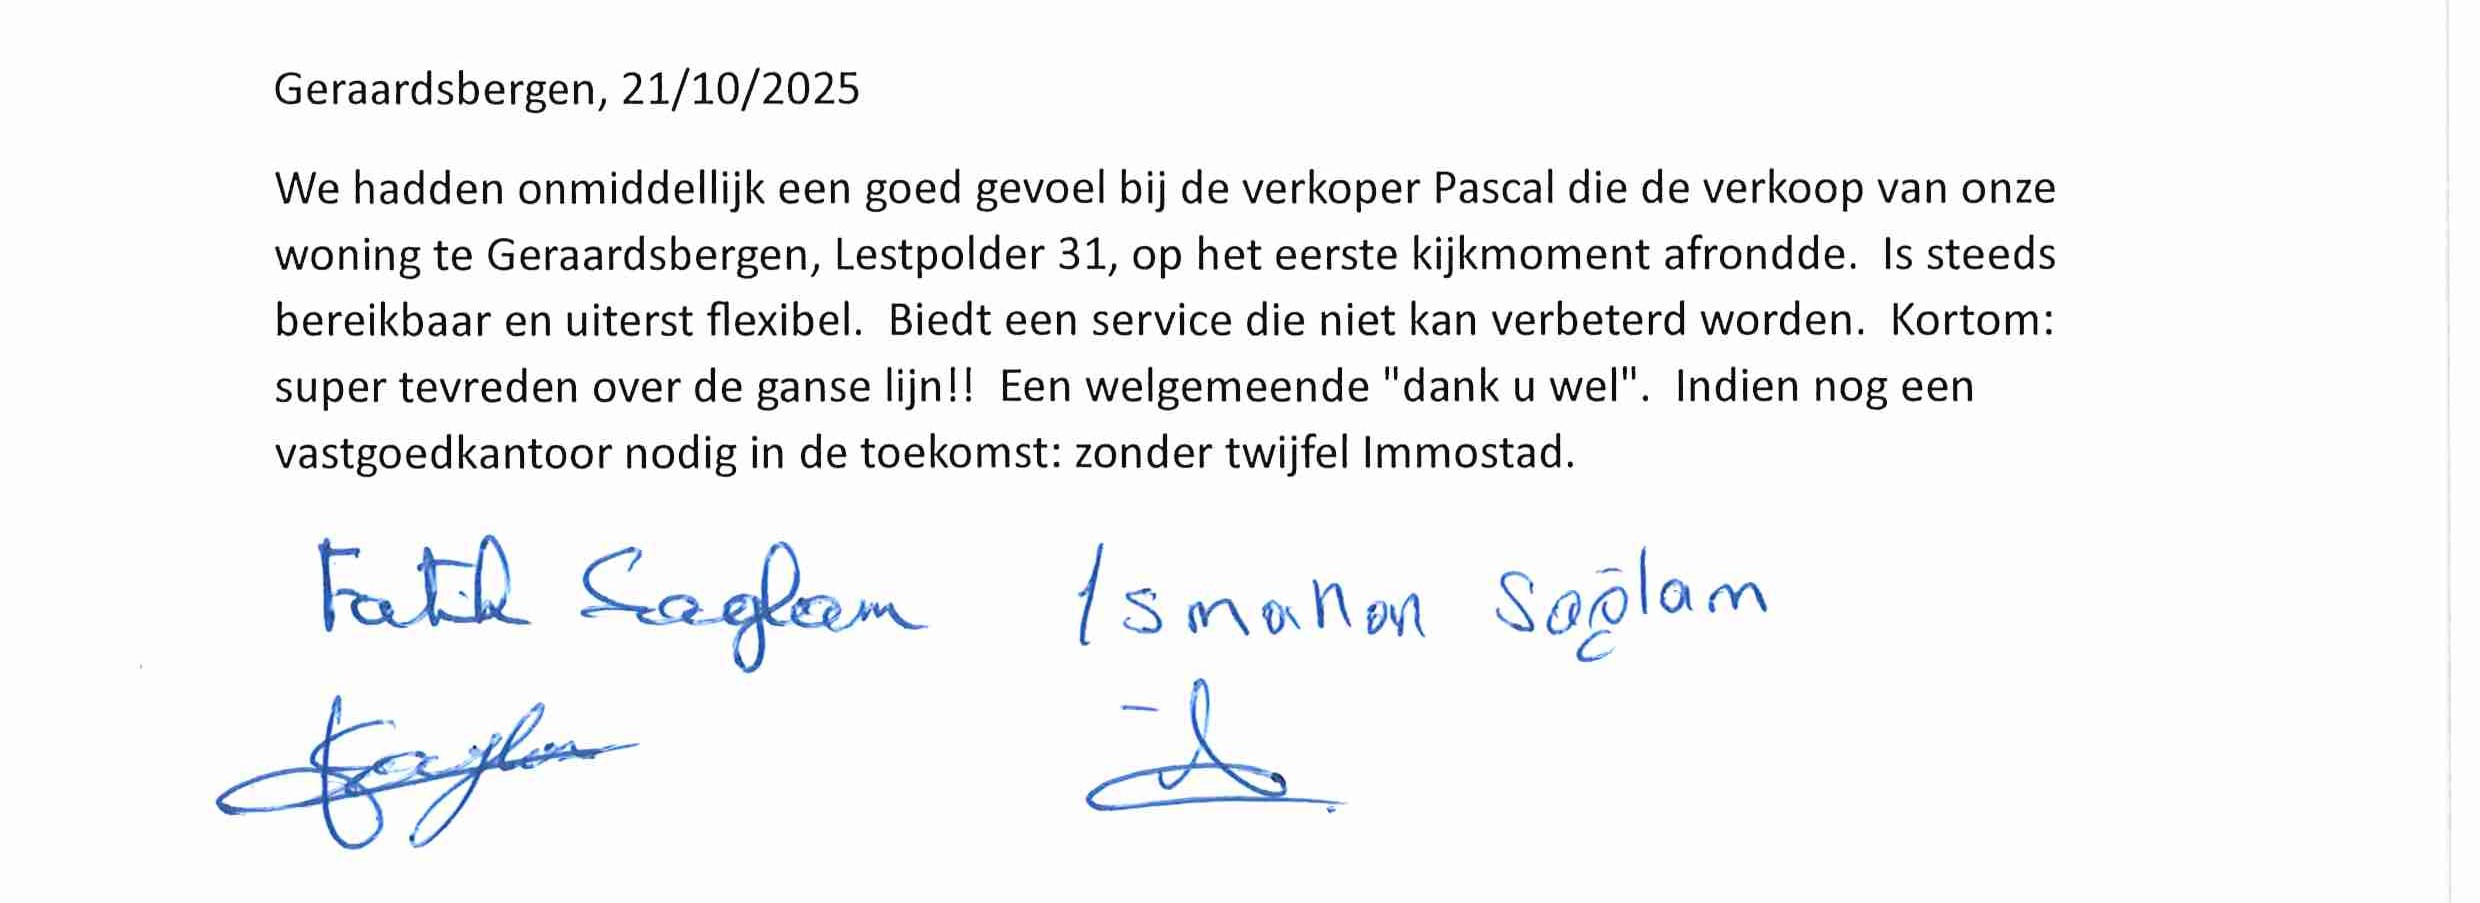 Geraardsbergen, 21/10/2025
We hadden onmiddellijk een goed gevoel bij de verkoper Pascal die de verkoop van onze
woning te Geraardsbergen, Lestpolder 31, op het eerste kijkmoment afrondde.  Is steeds
bereikbaar en uiterst flexibel.  Biedt een service die niet kan verbeterd worden.  Kortom:
super tevreden over de ganse lijn!!  Een welgemeende "dank u wel".  Indien nog een
vastgoedkantoor nodig in de toekomst: zonder twijfel Immostad.
Fatih Saglam Ismahan Sağlam